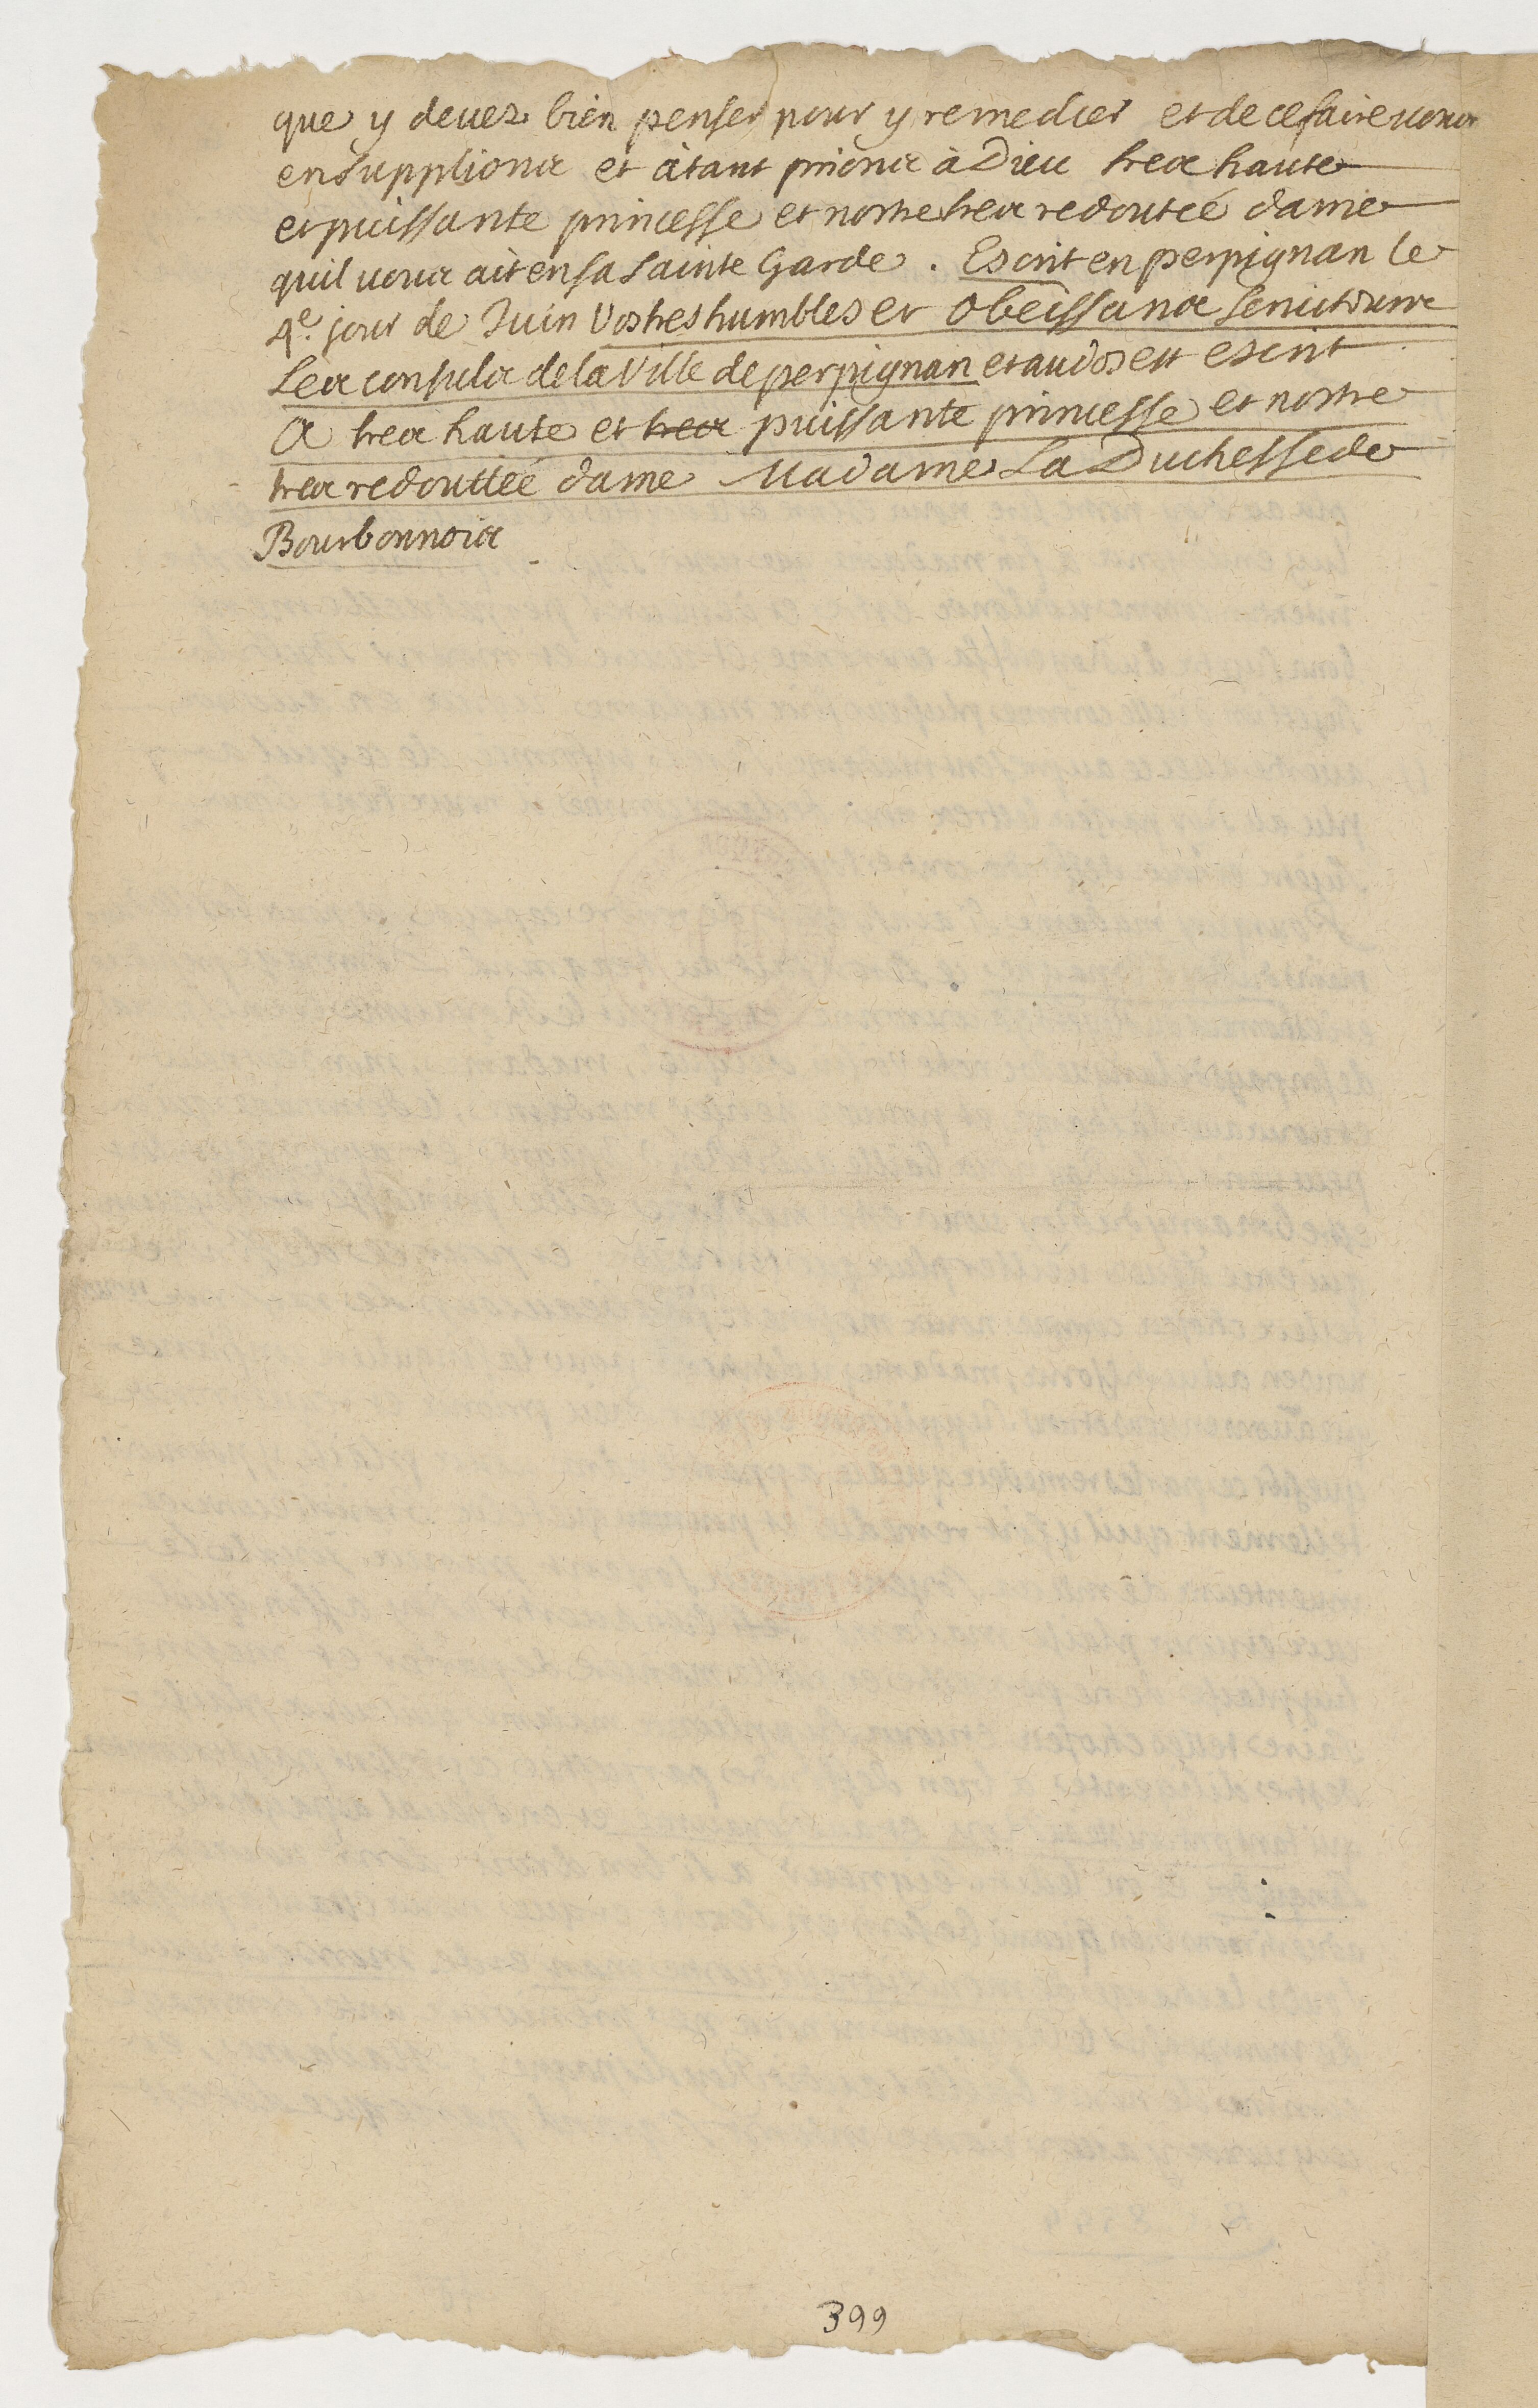 que y devez bien penser pour y remedier et de ce faire vous
en supplions et àtant prions à Dieu tres haute
et puissante princesse et nostre tres redoutée dame
quil vous ait en sa sainte Garde. Escrit en perpignan le
4e. jour de Juin Vostres humbles et Obeissans serviteurs
Les consuls de la Ville de perpignan et au dos est escrit
A tres haute et tres puissante princesse et nostre
tres redouttée dame Madame La Duchesse de
Bourbonnois
399